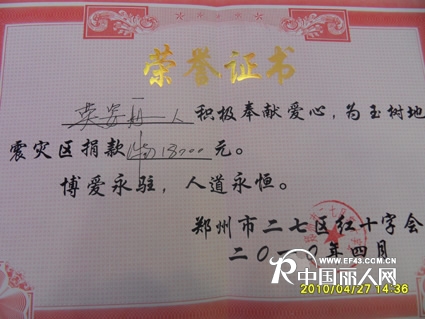 荣誉证书
人积极奉献爱心，为玉树地
震灾区捐款18000元。
博爱永驻，人道永恒。
郑州市二七区红十字会
二〇一〇年四月
WWW.EF43.COM.CN
中国丽人网
2010/04/27 14:36